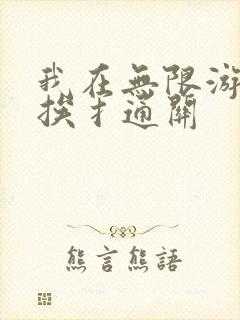 我在無限游
挨扌通關
熊言熊語